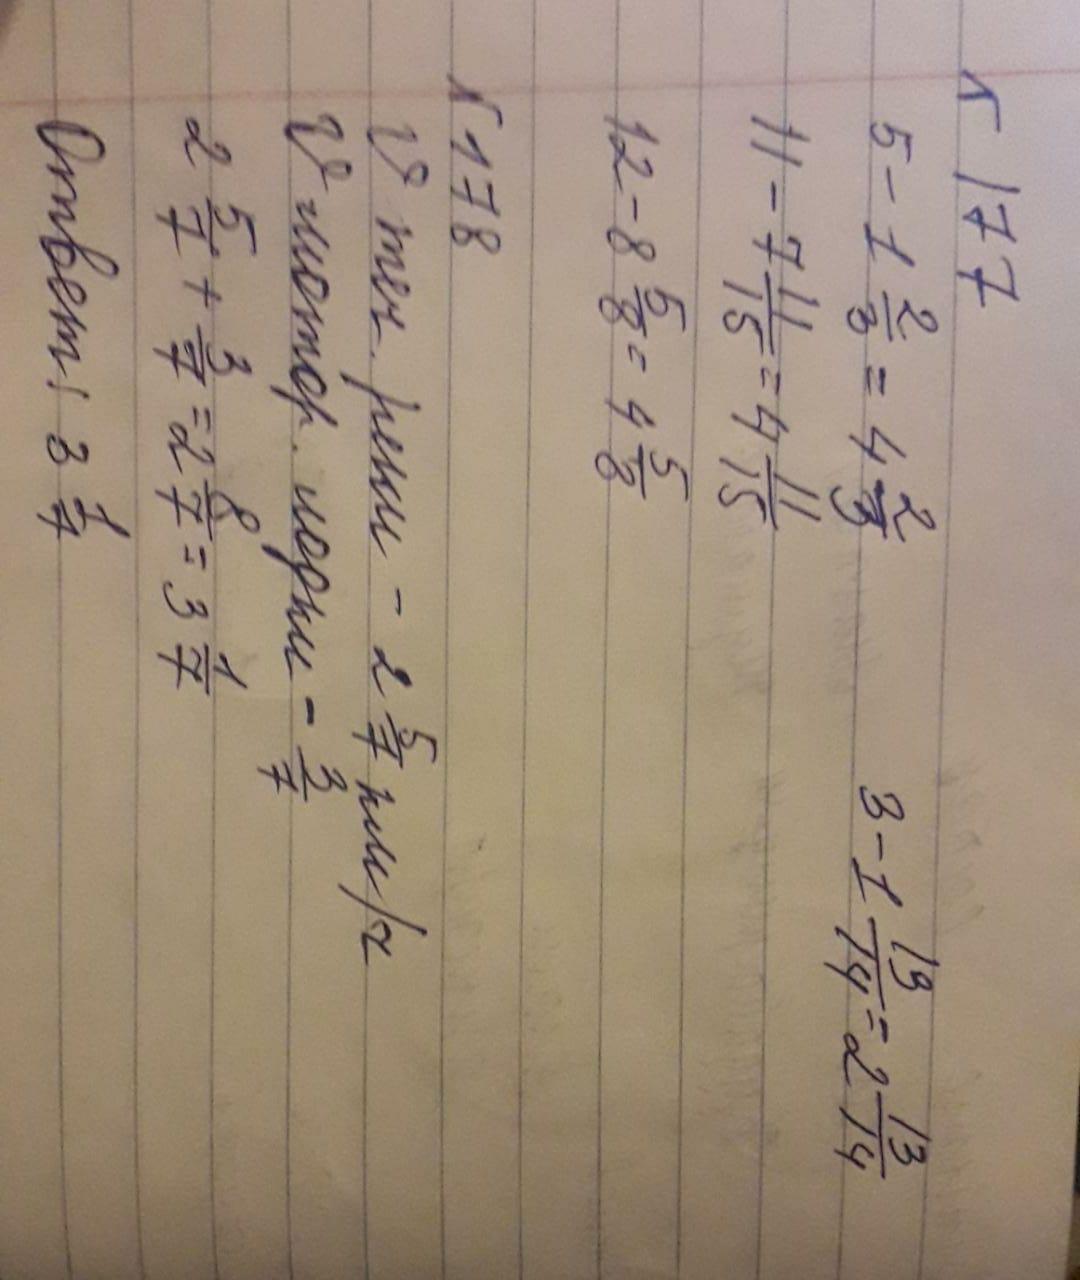 № 177
5 - 1 2/3 = 4 2/3    3 - 1 13/14 = 2 13/14
11 - 7 11/15 = 4 11/15
12 - 8 5/8 = 4 5/8
№ 178
V теч. реки - 2 5/7 км/ч
V мотор. лодки - 3/7
2 5/7 + 3/7 = 2 8/7 = 3 1/7
Ответ: 3 1/7